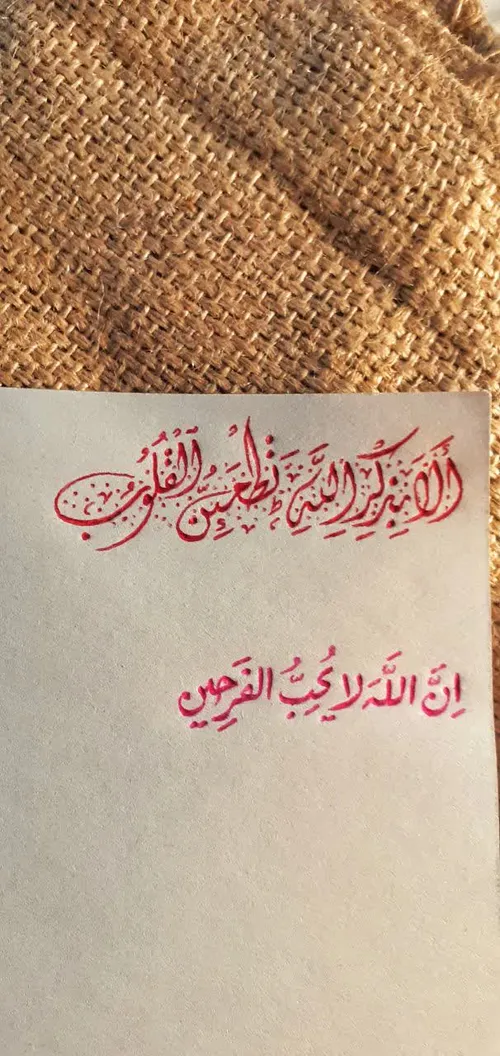 أَلَا بِذِكْرِ اللَّهِ تَطْمَئِنُّ الْقُلُوبُ
اِنَّ اللَّهَ لا يُحِبُّ الفَرِحين